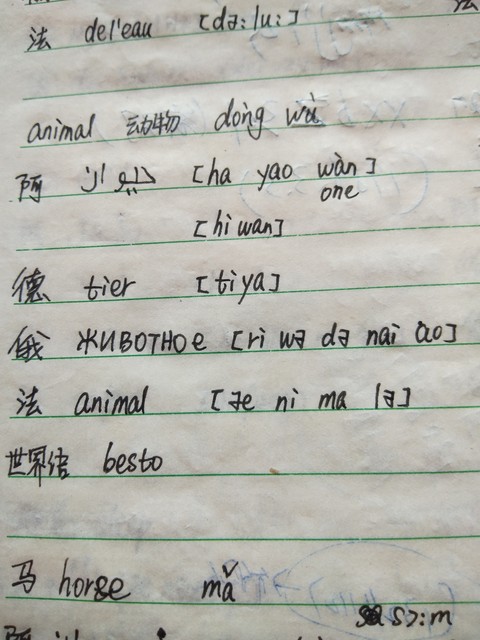 法 de l'eau [də:lu:]
animal 动物 dòng wù
阿 [ha yao wàn]
one
[hi wan]
德 tier [tiya]
俄 животное [ri wə də nai ao]
法 animal [əe ni ma lə]
世界语 besto
马 horse mǎ